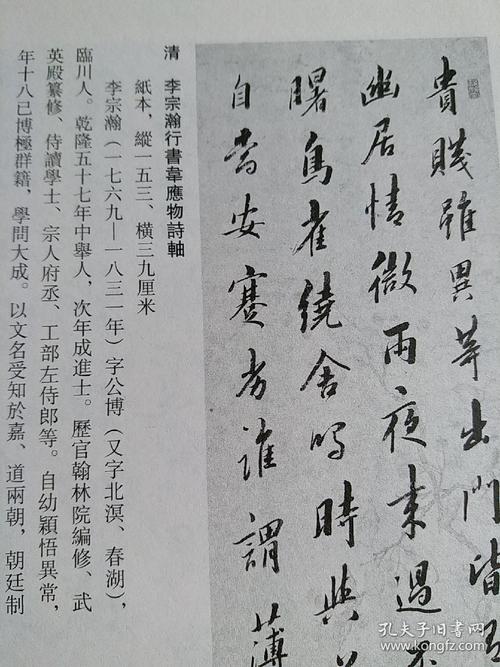 貴賤雖異等出門皆
幽居情微雨夜來過
曙鳥雀繞舍鳴時與
自當安蹇劣誰謂薄
清 李宗瀚行書韋應物詩軸
紙本，縱一五三、橫三九厘米
李宗瀚（一七六九—一八三一年）字公博（又字北溟、春湖），
臨川人。乾隆五十七年中舉人，次年成進士。歷官翰林院編修、武
英殿纂修、侍讀學士、宗人府丞、工部左侍郎等。自幼穎悟異常，
年十八已博極群籍，學問大成。以文名受知於嘉、道兩朝，朝廷制
孔夫子旧书网
www.kongfz.com